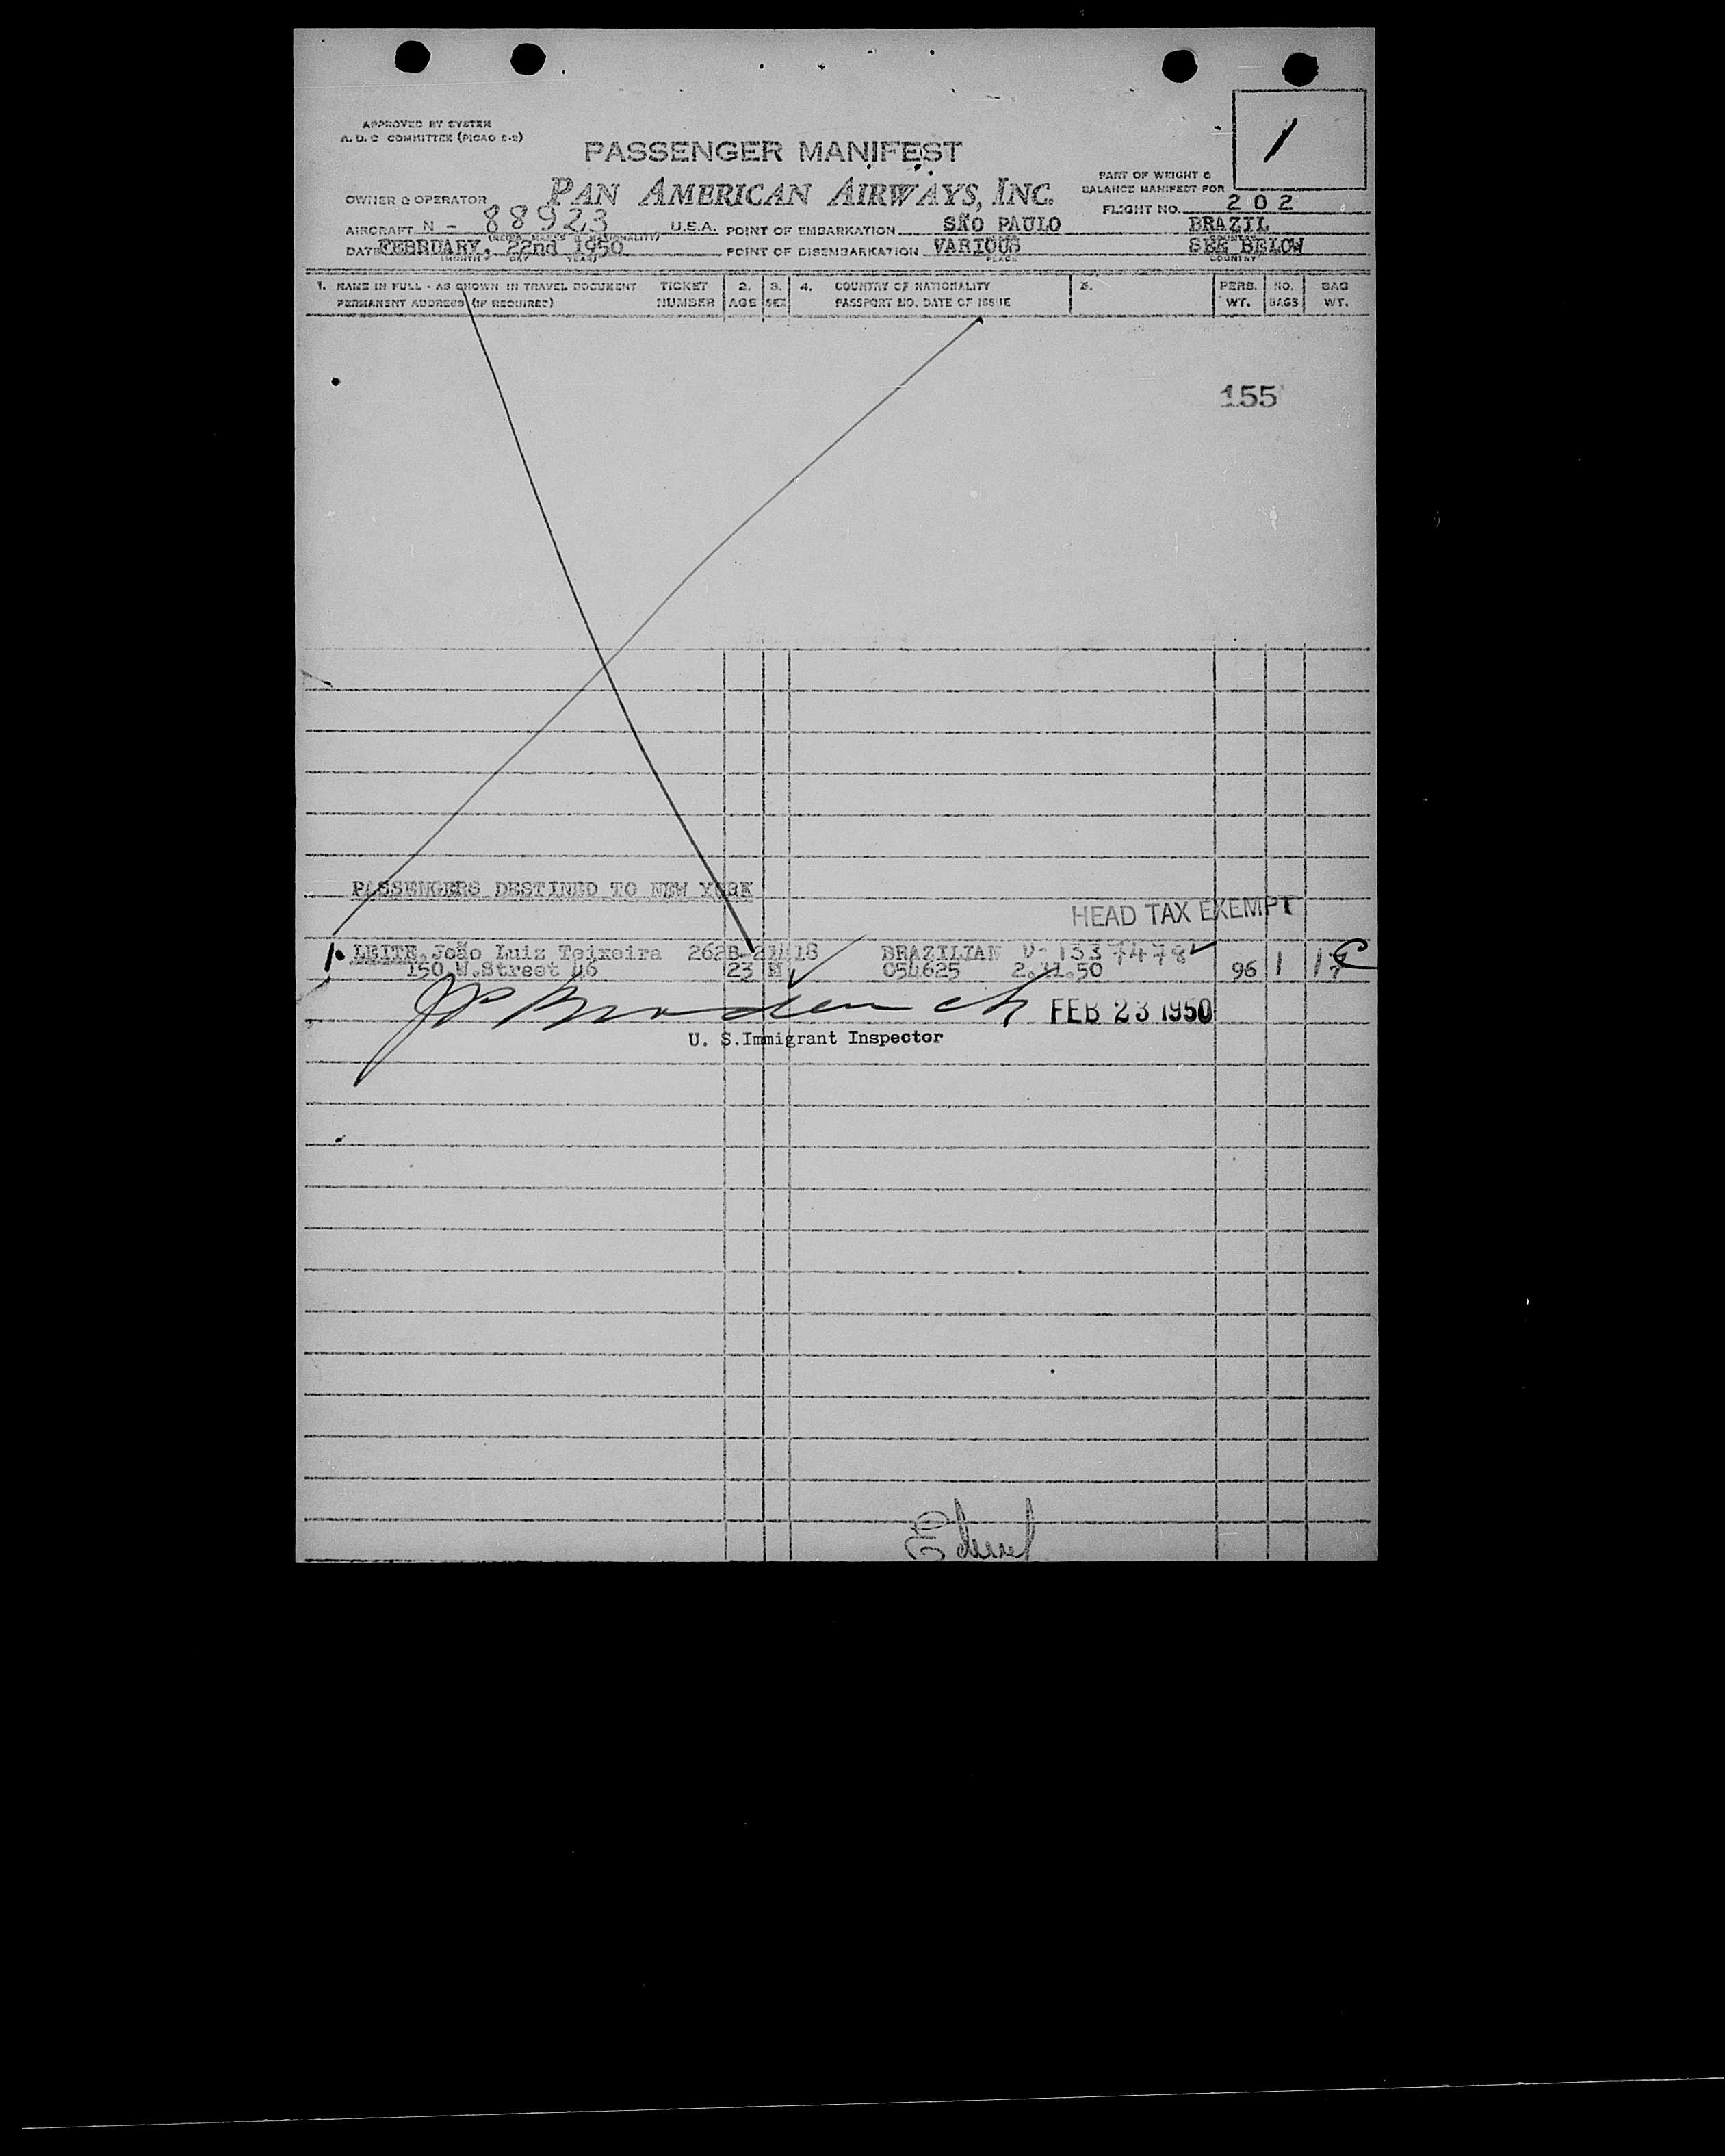 APPROVED BY SYSTEM
A. D. C COMMITTEE (PICAO 2-2)
1
PASSENGER MANIFEST
PAN AMERICAN AIRWAYS, INC.
PART OF WEIGHT &
BALANCE MANIFEST FOR
OWNER & OPERATOR
FLIGHT NO. 202
AIRCRAFT N - 88923 U.S.A. POINT OF EMBARKATION SÃO PAULO BRAZIL
DATE FEBRUARY, 22nd 1950 POINT OF DISEMBARKATION VARIOUS SEE BELOW
(MONTH DAY YEAR) PLACE COUNTRY
1. NAME IN FULL - AS SHOWN IN TRAVEL DOCUMENT TICKET 2. 3. 4. COUNTRY OF NATIONALITY 5. PERS. NO. BAG
PERMANENT ADDRESS (IF REQUIRED) NUMBER AGE SEX PASSPORT NO. DATE OF ISSUE WT. BAGS WT.
155
PASSENGERS DESTINED TO NEW YORK
HEAD TAX EXEMPT
1. LEITE, João Luiz Teixeira BRAZILIAN V- 1337478
150 W.Street 46 23 M 054625 50 96 1
FEB 23 1950
U. S.Immigrant Inspector